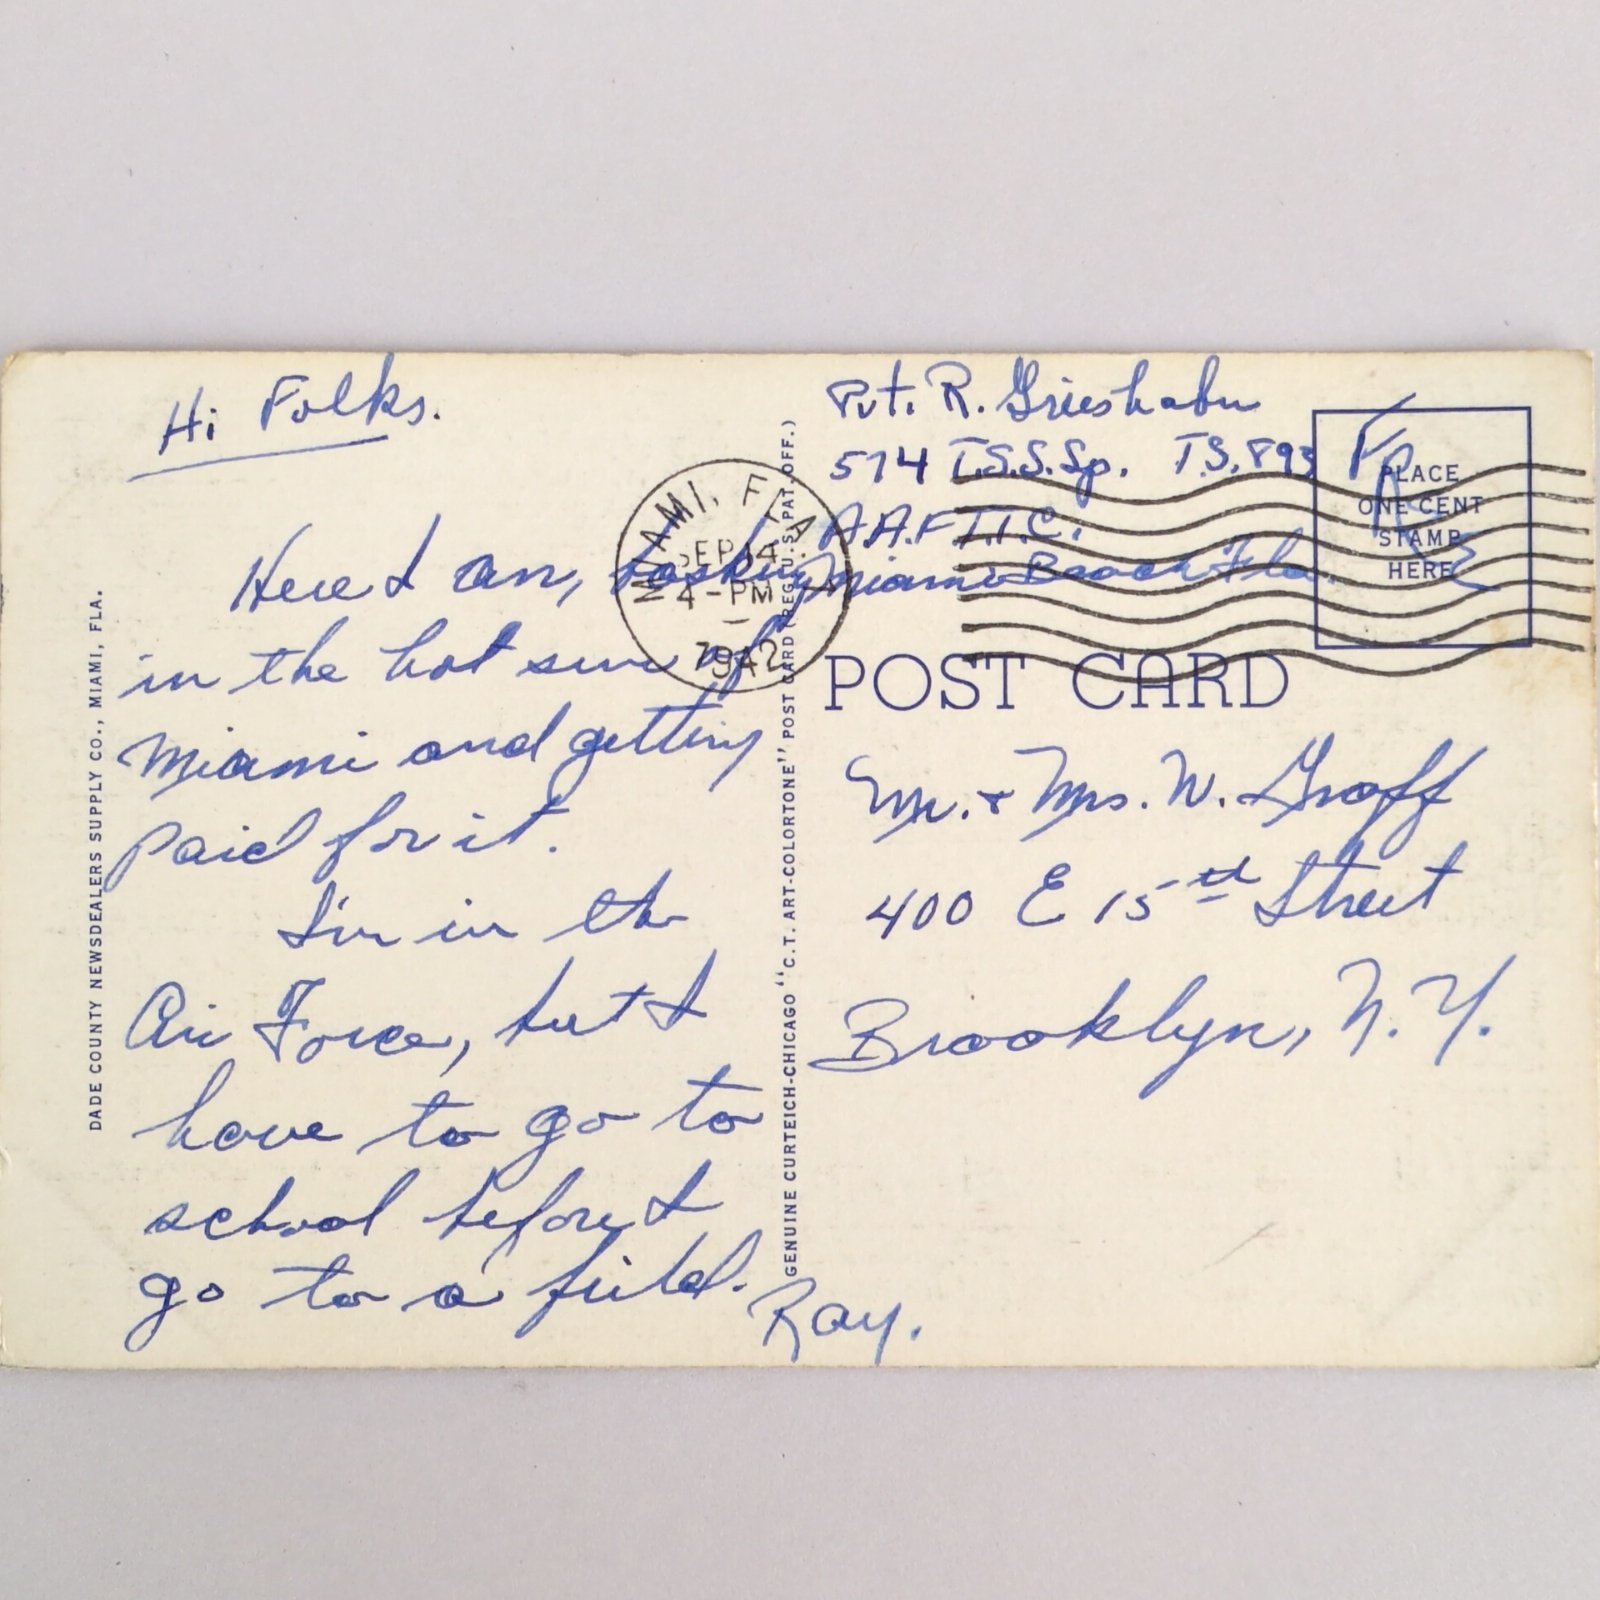 Hi Folks.
Here I am, basking
in the hot sun of
Miami and getting
paid for it.
I'm in the
Air Force, but I
have to go to
school before I
go to a field.
Ray.
Pvt. R. Grieshaber
574 T.S.S.Sp. T.S. 893
A.A.F.T.T.C.
Miami Beach Fla.
Free
MIAMI, FLA.
SEP 14
4-PM
1942
PLACE
ONE CENT
STAMP
HERE
POST CARD
Mr. & Mrs. W. Graff
400 E 15th Street
Brooklyn, N.Y.
DADE COUNTY NEWSDEALERS SUPPLY CO., MIAMI, FLA.
GENUINE CURTEICH-CHICAGO "C.T. ART-COLORTONE" POST CARD (REG. U.S. PAT. OFF.)